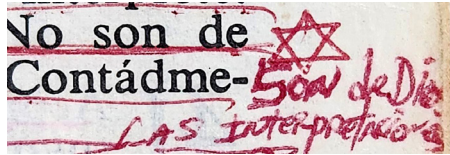 No son de
Contádme- Son de Dios
LAS InterpretAcioneS